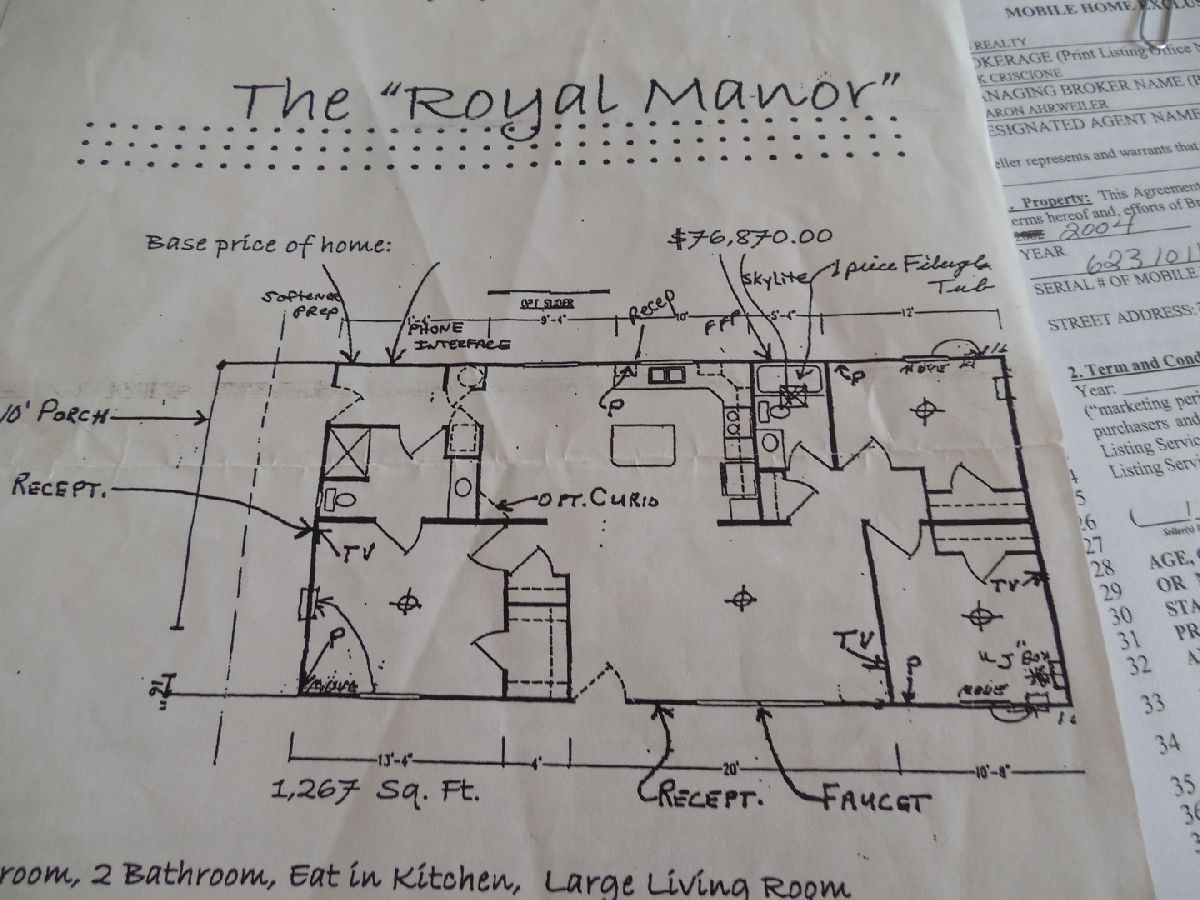 The "Royal Manor"
Base price of home: $76,870.00
SOFTENER PREP
PHONE INTERFACE
OPT SLIDER
9'-4"
RECEP
10'
SKYLITE
1 piece Fibergla
Tub
5'-4"
12'
10' PORCH
P
P
MOVE
RECEPT.
OPT. CURIO
TV
TV
P
TV
P
"J" BOX
MOVE
13'-4"
4'
20'
10'-8"
1,267 Sq. Ft.
RECEPT.
FAUCET
room, 2 Bathroom, Eat in Kitchen, Large Living Room
MOBILE HOME EXCLUS
REALTY
OKERAGE (Print Listing Office N
K CRISCIONE
ANAGING BROKER NAME (P
ARON AHRWEILER
ESIGNATED AGENT NAME
eller represents and warrants that
. Property: This Agreement
erms hereof and, efforts of Br
2004
YEAR
623101
SERIAL # OF MOBILE
STREET ADDRESS:
2. Term and Cond
Year:
("marketing per
purchasers and
Listing Servic
Listing Servi
4
5
26
27
28 AGE,
29 OR
30 STA
31 PR
32 A
33
34
35
36
3